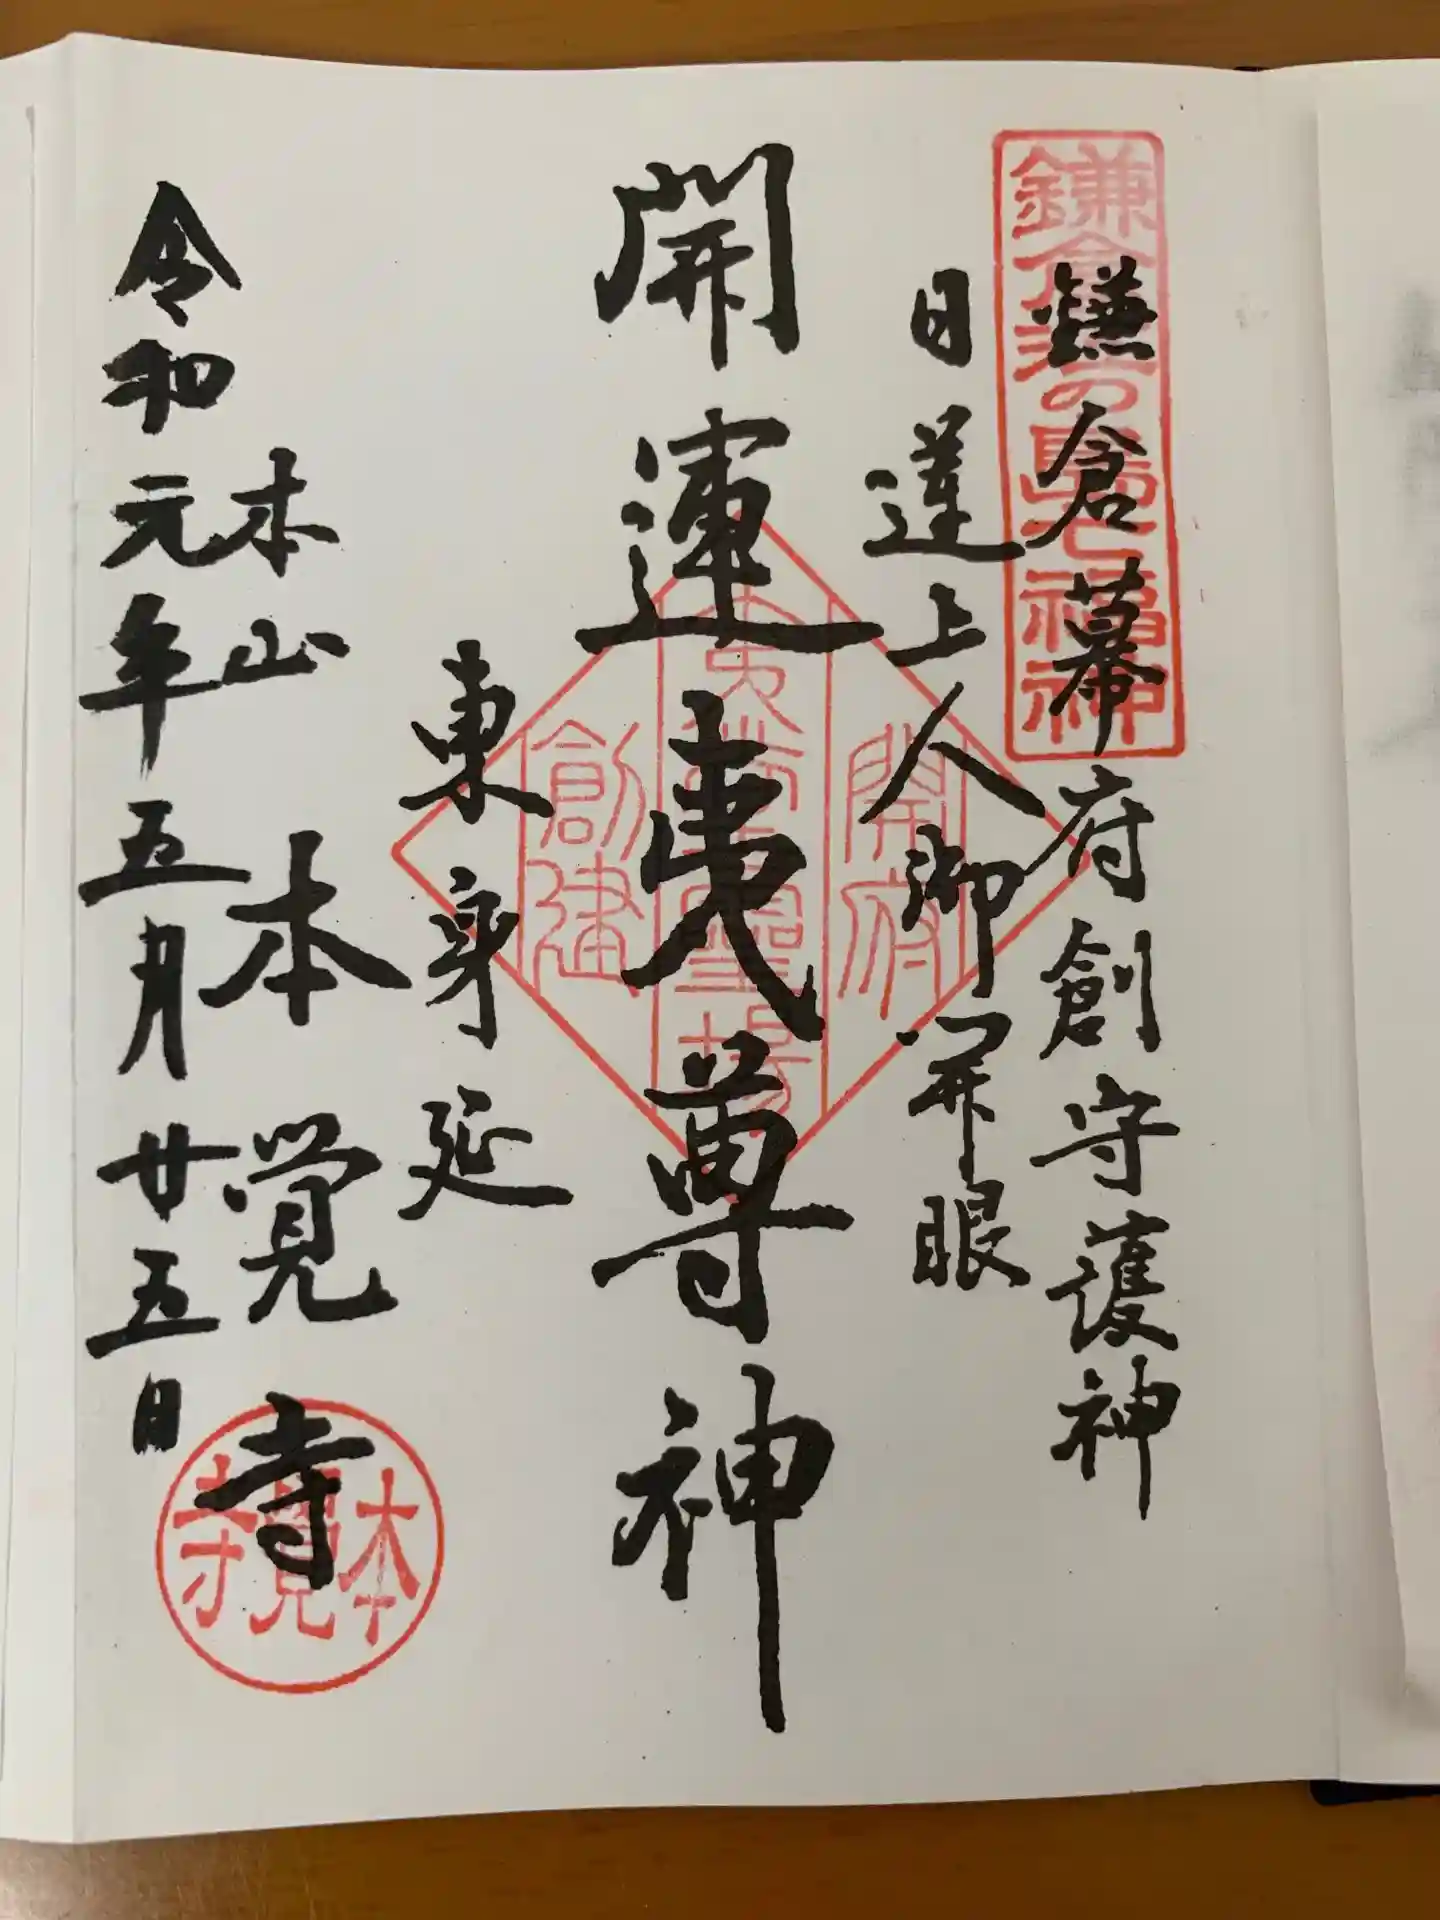 鎌倉幕府創守護神
日蓮上人御開眼
開運夷尊神
東身延
本山 本覚寺
令和元年五月廿五日
開府
夷堂霊場
創建
本覺寺